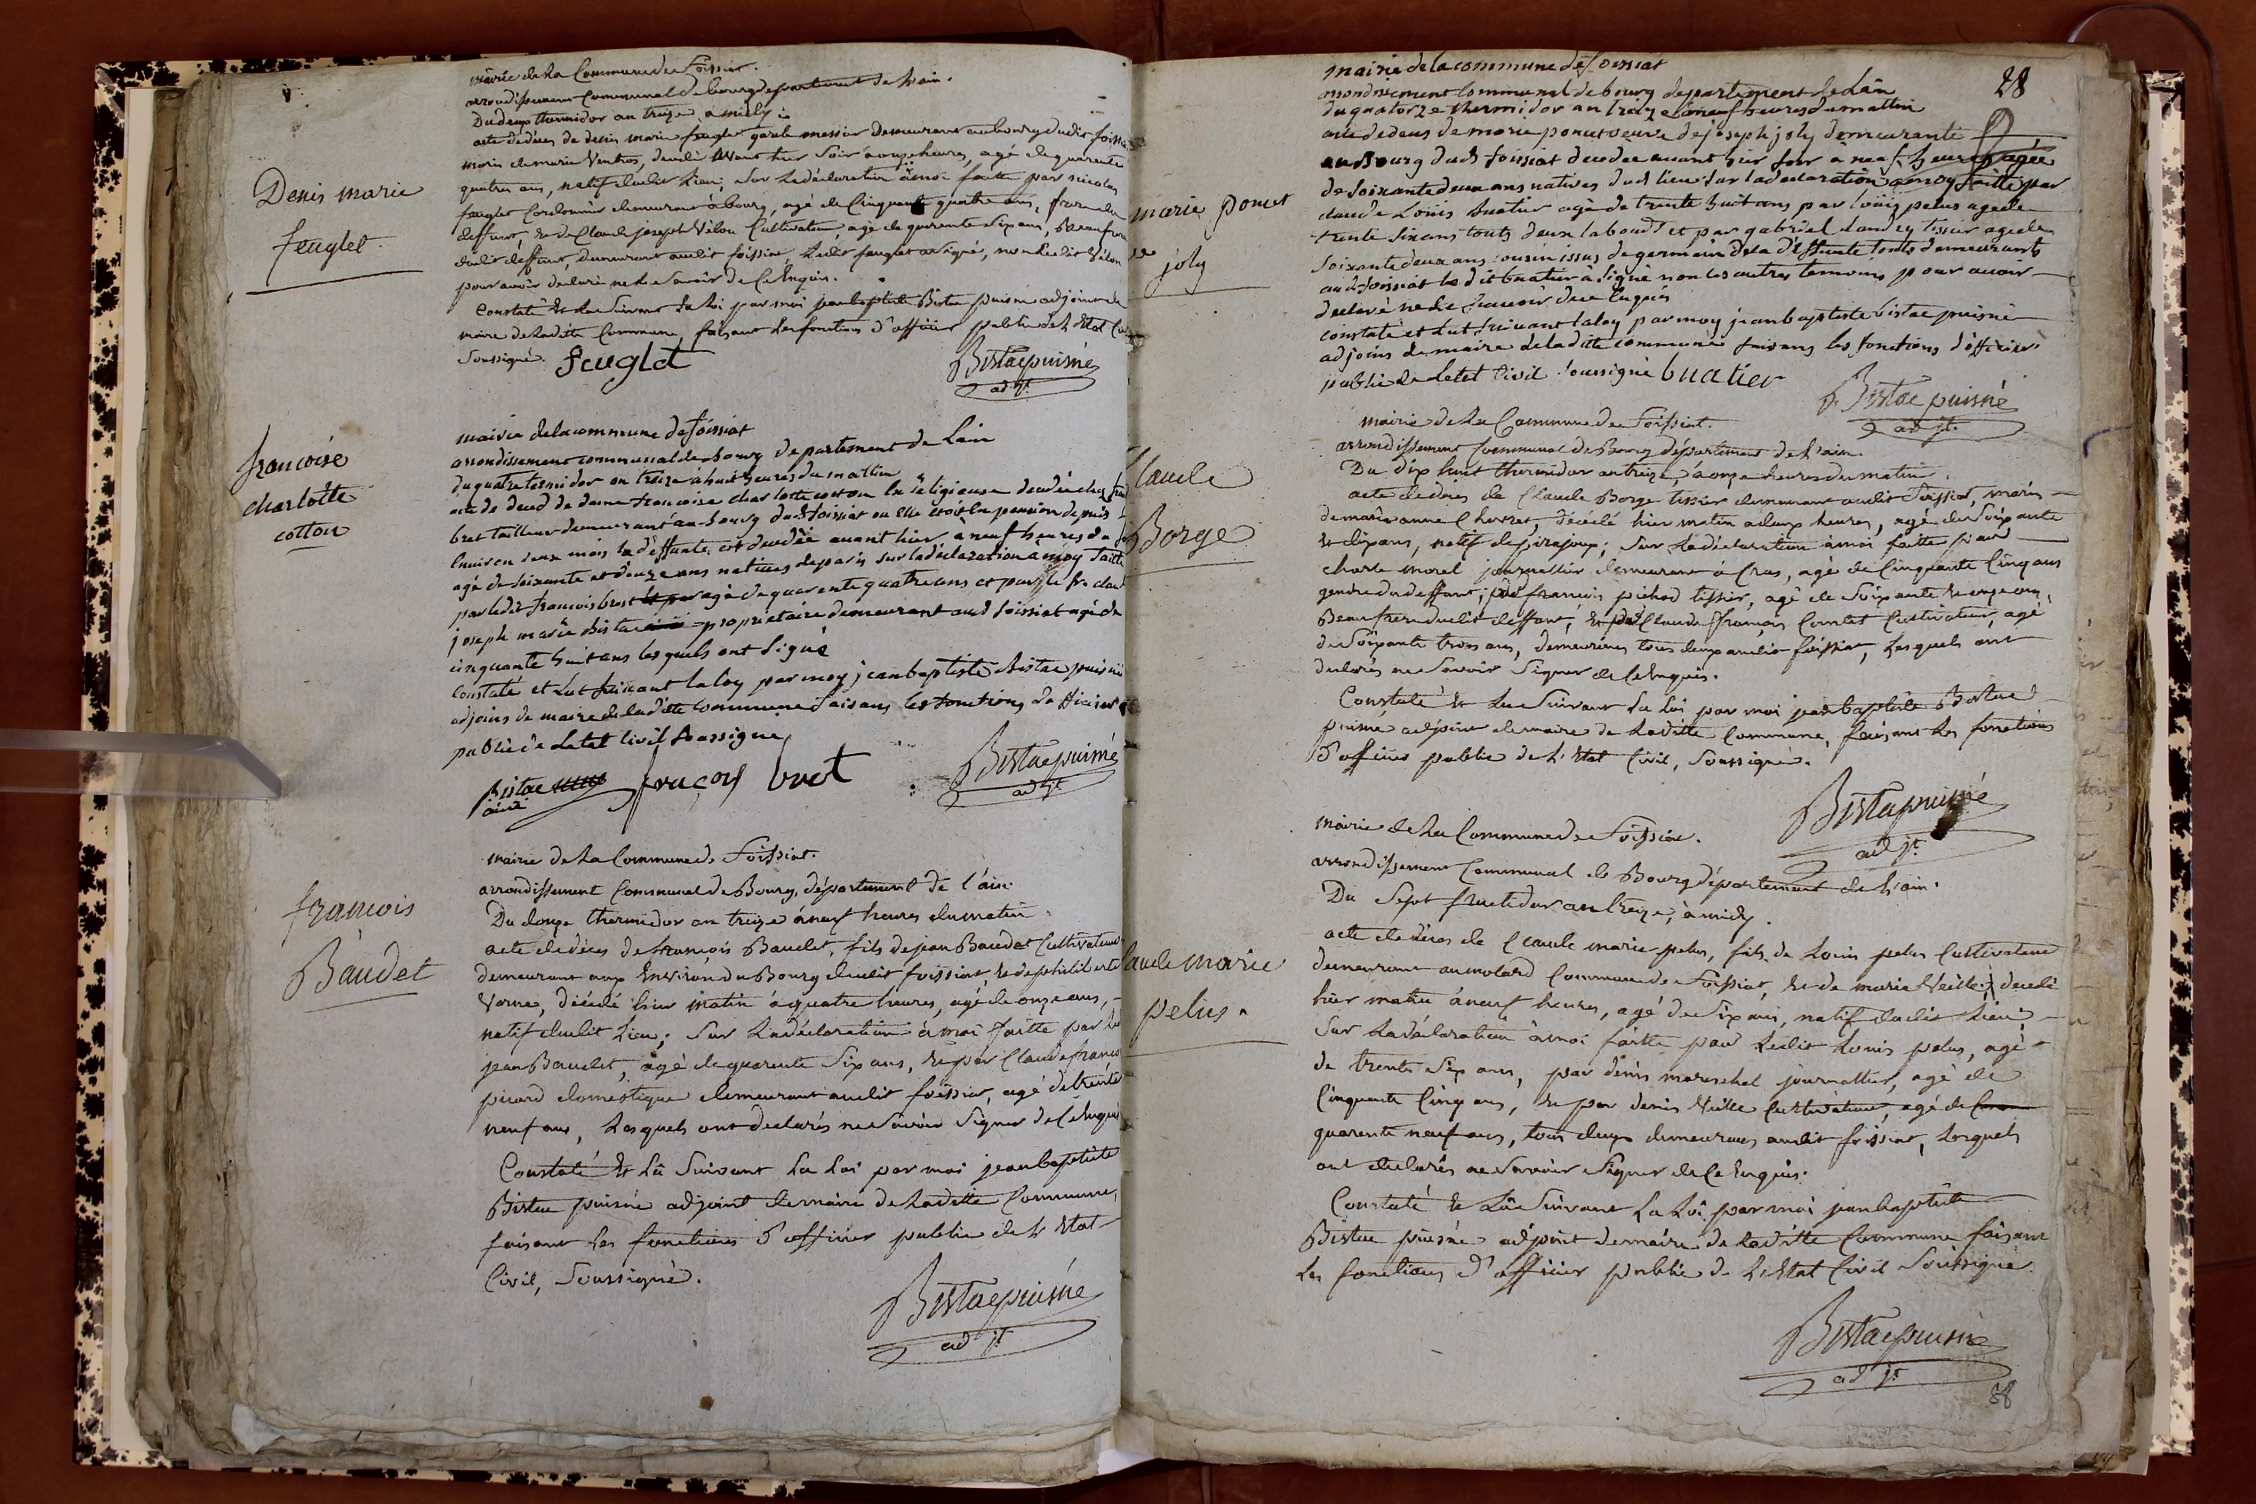 Mairie de la Commune de Foissiat.
arrondissement Communal de bourg departement de l'ain.
Du deux thermidor an treize, a midy
acte de décès de denis marie feuglet garde messier demeurant au bourg dudit foissiat
marin de marie Ventros, décédé avant hier soir a onze heures, agé de quarente
quatre ans, natif dudit Lieu; sur la déclaration à moi faitte par nicolas
feuglet Cordonnier demeurant à bourg, agé de Cinquante quatre ans, frere du
deffunt, et de Claude joseph Vélon Cultivateur, agé de quarente six ans, beaufrere
dudit deffunt, demeurant audit foissiat, Ledit feuglet a signé, non Ledit Vélon
pour avoir declaré ne le savoir de Ce Enquis.
Constaté et Lu Suivant La Loi par moi jean baptiste Bistac puisné adjoint de
maire de Laditte Commune, faisant Les fonctions d'officier public de L'Etat Civil
Soussigné. feuglet
Bistac puisné
adjt
Denis marie
feuglet
mairie de la commune de foissiat
arrondissement communal de bourg departement de Lain
du quatre termidor an treize a huit heures du mattin
acte de deced de dame francoise charlotte cotton Ex religieuse decedée chez
bret tailleur demeurant au bourg dud foissiat ou Elle etoit En pension depuis
Environ deux mois la deffunte est decedée avant hier a neuf heures du
agé de soixante et douze ans natives de paris sur la déclaration a moy faitte
par ledit francois bret agé de quarente quatre ans et par
joseph marie bistac propriétaire demeurant aud foissiat agé de
cinquante huit ans lesquels ont signé
constaté et Lut suivant la loy par moy jean baptiste Bistac puisné
adjoins de maire de laditte commune faisans les fonctions dofficier
public de Letat civil soussigné
Bistac
ainé
françois bret
Bistac puisné
adjt
francoise
charlotte
cotton
Mairie de la Commune de Foissiat.
arrondissement Communal de Bourg, département de l'ain.
Du douze thermidor an treize à neuf heures du matin.
acte de décès de françois Baudet, fils de jean Baudet Cultivateur
demeurant aux Environs du Bourg dudit foissiat, et de philiberte
Varne, décédé hier matin à quatre heures, agé de onze ans,
natif dudit Lieu; sur La déclaration à moi faitte par
jean Baudet, agé de quarente Six ans, et par Claude francois
picard domestique demeurant audit foissiat, agé de trente
neuf ans, Lesquels ont declarés ne Savoir Signer de Ce Enquis
Constaté et Lû Suivant La Loi par moi jean baptiste
Bistac puisné adjoint de maire de Laditte Commune,
faisant Les fonctions d'officier public de L'Etat
Civil, Soussigné.
Bistac puisné
adjt
françois
Baudet
28
mairie de la commune de foissiat
arrondisement communal de bourg departement de Lain
du quatorze thermidor an treize a neuf heures du mattin
acte de deces de marie poncet veuve de joseph joly demeurante
au Bourg dud foissiat decedée avant hier soir a neuf heures agée
de soixante deux ans natives dud lieu sur la declaration a moy faitte par
claude Louis buatier agé de trente huit ans par louis pelus agé de
trente six ans touts deux laboud et par gabriel Landry tissier agé de
soixante deux ans cousin issus de germain de la deffunte touts demeurants
aud foissiat le dit buatier a signé non les autres temoins pour avoir
declaré ne le scavoir de ce Enquis
constaté et Lut suivant la loy par moy jean baptiste bistac puisné
adjoins de maire de laditte commune faisans les fonctions dofficier
public de Letat Civil soussigné buatier
Bistac puisné
adjt
marie poncet
ve
joly
mairie de La Commune de Foissiat.
arrondissement Communal de Bourg département de L'ain.
Du dix huit thermidor an treize, à onze heures du matin.
acte de décès de Claude Borge tissier demeurant audit Foissiat, marin
de marie anne Charret, décédé hier matin a deux heures, agé de Soixante
et dix ans, natif de pirajoux; sur La déclaration à moi faitte par
charle morel journallier demeurant à Cras, agé de Cinquante Cinq ans
gendre du deffunt; de francois pichod tissier, agé de Soixante et onze ans,
Beaufrere dudit deffunt, et de Claude françois Comtet Cultivateur, agé
de Soixante trois ans, demeurans tous deux audit foissiat, Lesquels ont
declarés ne Savoir Signer de Ce Enquis.
Constaté et Lu Suivant La Loi par moi jean baptiste Bistac
puisné adjoint de maire de Laditte Commune, faisant Les fonctions
d'officier public de L'Etat Civil, Soussigné.
Bistac puisné
adjt
Claude
Borge
Mairie de La Commune de Foissiat.
arrondissement Communal de Bourg département de L'ain.
Du Sept fructidor an treize, à midy.
acte de décès de Claude marie pelus, fils de Louis pelus Cultivateur
demeurant au molard Commune de Foissiat, et de marie Vieille; décédé
hier matin à neuf heures, agé de Six ans, natif dudit Lieu;
Sur La déclaration à moi faitte par Ledit Louis pelus, agé
de trente Six ans, par denis mareschal journallier, agé de
Cinquante Cinq ans, et par denis Vieille Cultivateur, agé de
quarente neuf ans, tous deux demeurans audit foissiat, Lesquels
ont declarés ne Savoir Signer de Ce Enquis.
Constaté et Lû Suivant La Loi par moi jean baptiste
Bistac puisné adjoint de maire de Laditte Commune faisant
Les fonctions d'officier public de L'Etat Civil Soussigné.
Bistac puisné
adjt
Claude marie
pelus
88